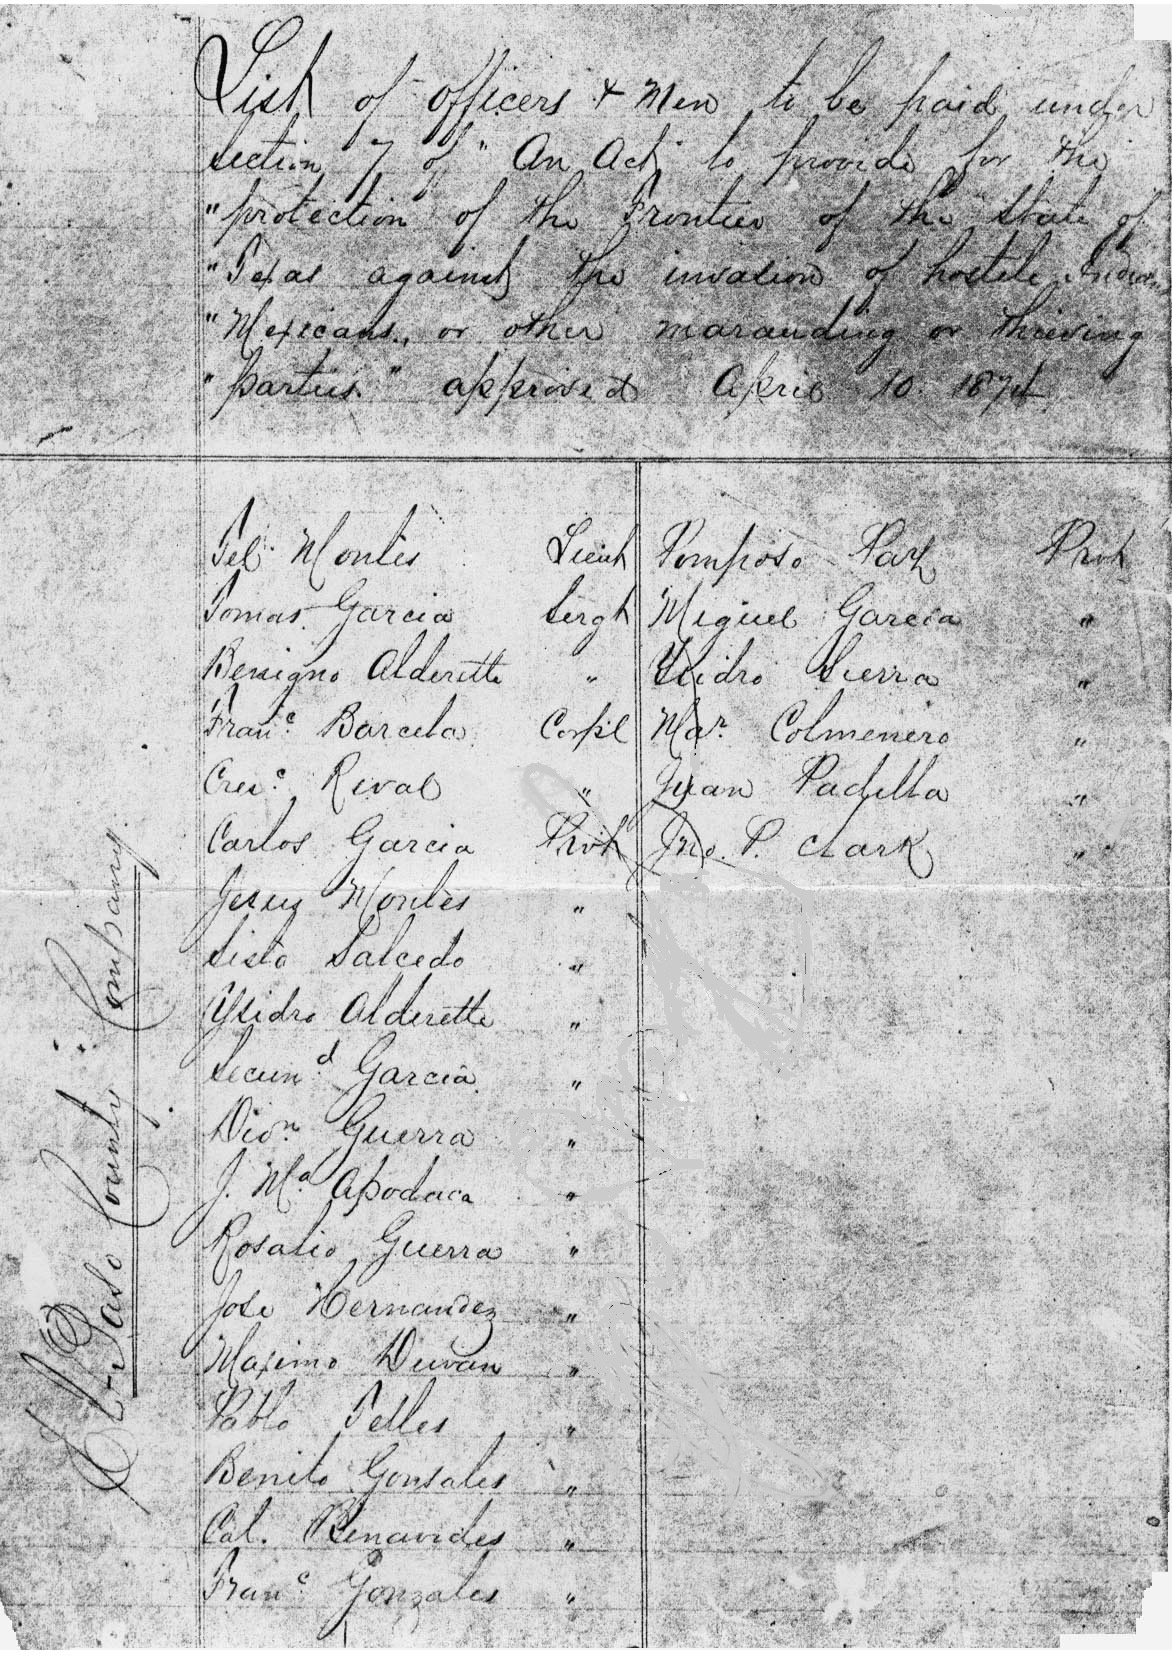 List of officers & Men to be paid under
Section 7 of "An Act to provide for the
"protection of the Frontier of the State of
"Texas against the invasion of hostile Indians
"Mexicans, or other marauding or thieving
"parties." approved April 10. 1874
El Paso County Company
Tel. Montes Lieut
Tomas Garcia Sergt
Benigno Alderette "
Franc. Barcela Corpl
Cresc. Rival "
Carlos Garcia Privt
Jesus Montes "
Sisto Salcedo "
Ysidro Alderette "
Secund Garcia "
Dion Guerra "
J. Ma Apodaca "
Rosalio Guerra "
Jose Hernandez "
Maximo Duran "
Pablo Telles "
Benito Gonsales "
Cal. Benavides "
Franc Gonzales "
Pomposo Paz Privt
Miguel Garcia "
Ysidro Sierra "
Mar. Colmenero "
Juan Padilla "
Jno. P. Clark "